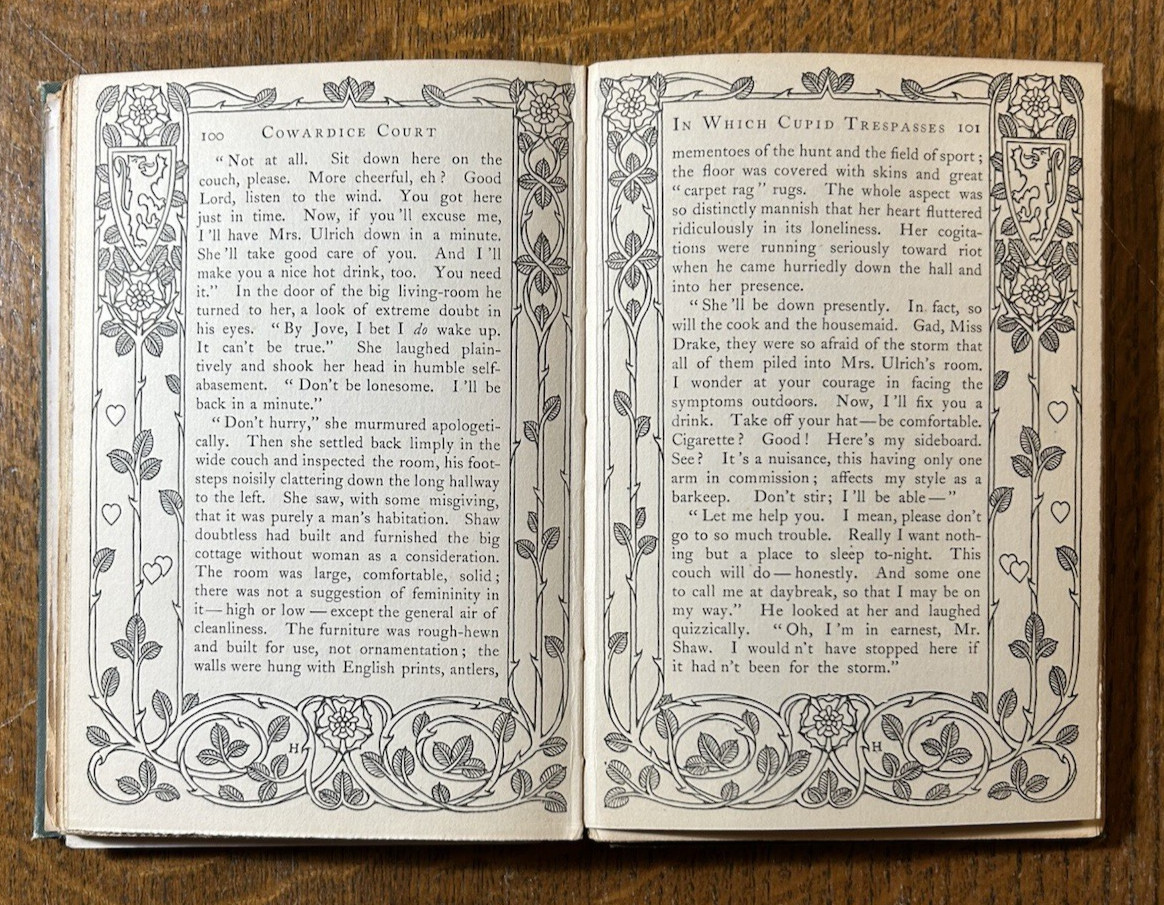 100 COWARDICE COURT
“Not at all. Sit down here on the
couch, please. More cheerful, eh? Good
Lord, listen to the wind. You got here
just in time. Now, if you’ll excuse me,
I’ll have Mrs. Ulrich down in a minute.
She’ll take good care of you. And I’ll
make you a nice hot drink, too. You need
it.” In the door of the big living-room he
turned to her, a look of extreme doubt in
his eyes. “By Jove, I bet I do wake up.
It can’t be true.” She laughed plain-
tively and shook her head in humble self-
abasement. “Don’t be lonesome. I’ll be
back in a minute.”
“Don’t hurry,” she murmured apologeti-
cally. Then she settled back limply in the
wide couch and inspected the room, his foot-
steps noisily clattering down the long hallway
to the left. She saw, with some misgiving,
that it was purely a man’s habitation. Shaw
doubtless had built and furnished the big
cottage without woman as a consideration.
The room was large, comfortable, solid;
there was not a suggestion of femininity in
it—high or low—except the general air of
cleanliness. The furniture was rough-hewn
and built for use, not ornamentation; the
walls were hung with English prints, antlers,
H
IN WHICH CUPID TRESPASSES 101
mementoes of the hunt and the field of sport;
the floor was covered with skins and great
“carpet rag” rugs. The whole aspect was
so distinctly mannish that her heart fluttered
ridiculously in its loneliness. Her cogita-
tions were running seriously toward riot
when he came hurriedly down the hall and
into her presence.
“She’ll be down presently. In fact, so
will the cook and the housemaid. Gad, Miss
Drake, they were so afraid of the storm that
all of them piled into Mrs. Ulrich’s room.
I wonder at your courage in facing the
symptoms outdoors. Now, I’ll fix you a
drink. Take off your hat—be comfortable.
Cigarette? Good! Here’s my sideboard.
See? It’s a nuisance, this having only one
arm in commission; affects my style as a
barkeep. Don’t stir; I’ll be able—”
“Let me help you. I mean, please don’t
go to so much trouble. Really I want noth-
ing but a place to sleep to-night. This
couch will do—honestly. And some one
to call me at daybreak, so that I may be on
my way.” He looked at her and laughed
quizzically. “Oh, I’m in earnest, Mr.
Shaw. I would n’t have stopped here if
it had n’t been for the storm.”
H